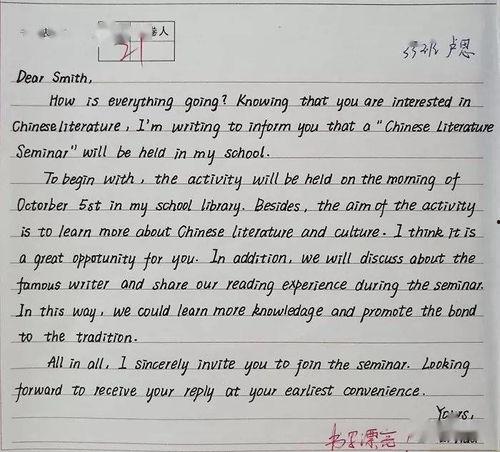 人
21
卢恩
Dear Smith,
How is everything going? Knowing that you are interested in
Chinese literature, I'm writing to inform you that a "Chinese Literature
Seminar" will be held in my school.
To begin with, the activity will be held on the morning of
Octorber 5st in my school library. Besides, the aim of the activity
is to learn more about Chinese literature and culture. I think it is
a great oppotunity for you. In addition, we will discuss about the
famous writer and share our reading experience during the seminar.
In this way, we could learn more knowledage and promote the bond
to the tradition.
All in all, I sincerely invite you to join the seminar. Looking
forward to receive your reply at your earliest convenience.
Yours,
书写漂亮